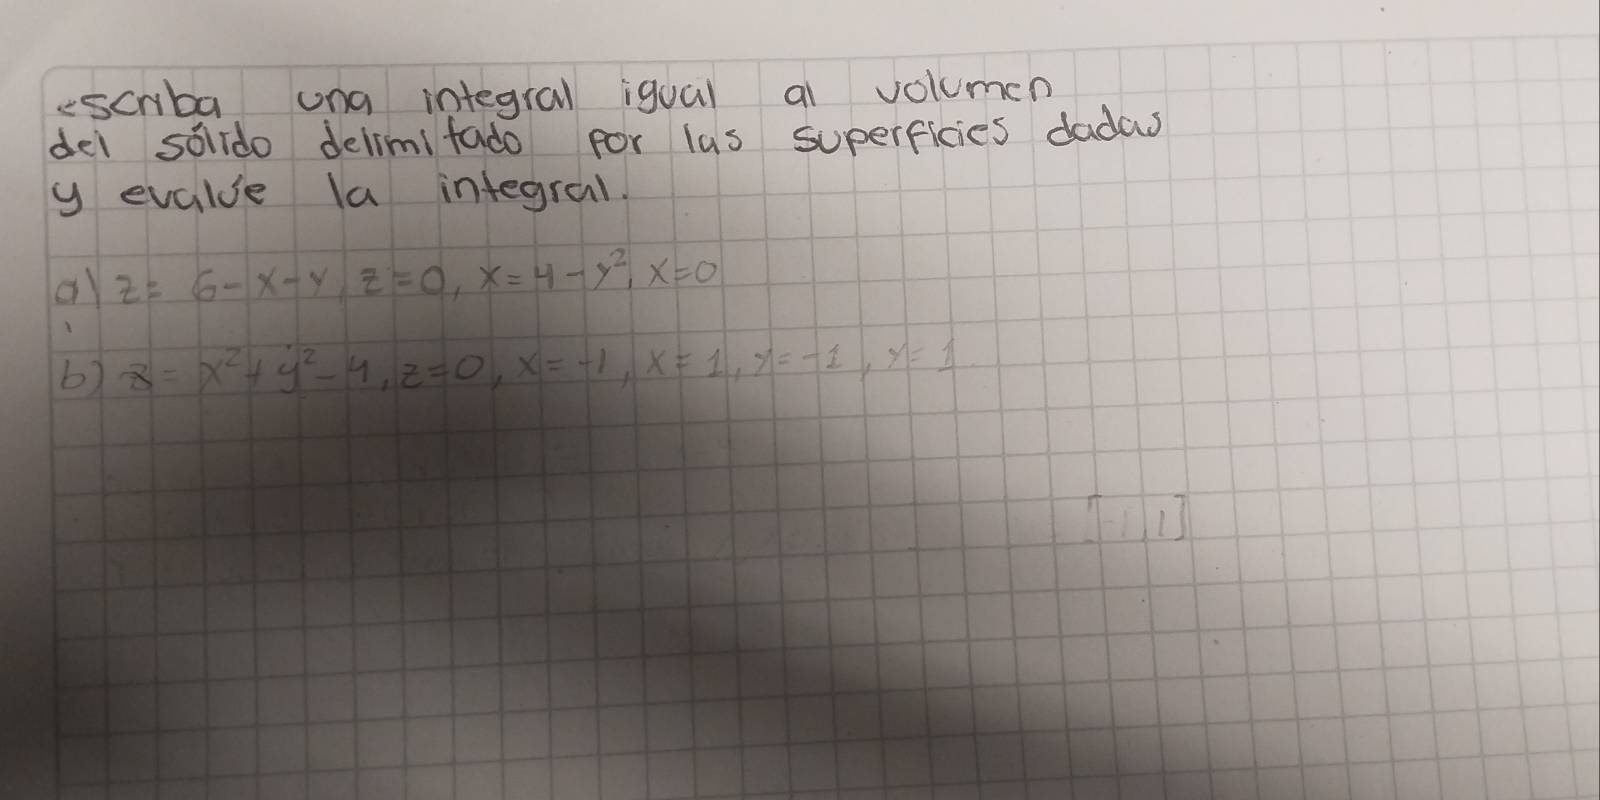 escriba una integral igual al volumen
del sólido delimitado por las superficies dadas
y evalúe la integral.
a) z = 6-x-y, z=0, x=4-y², x=0
b) z = x²+y²-4, z=0, x=-1, x=1, y=-1, y=1
[-1,1]